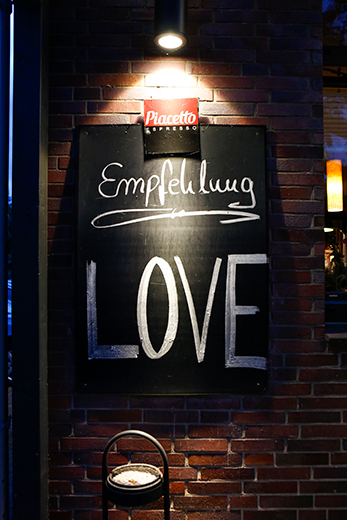 Piacetto
ESPRESSO
Empfehlung
LOVE